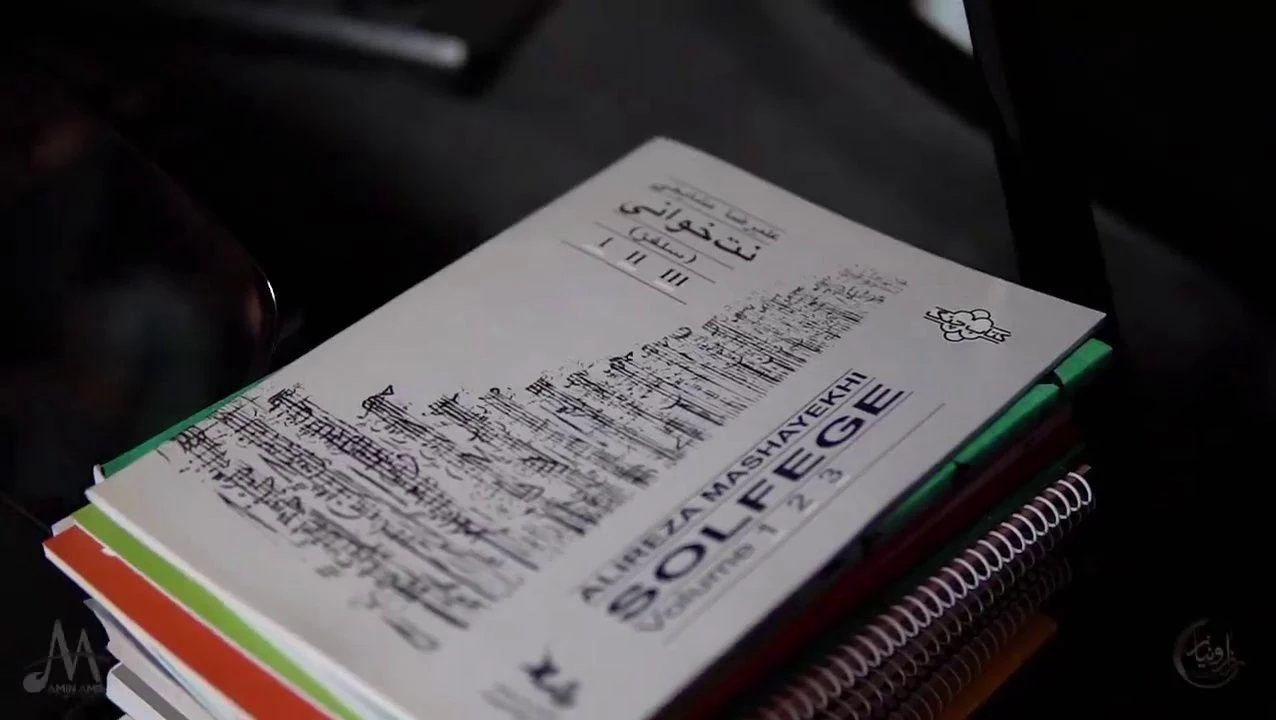 علیرضا مشایخی
نت‌خوانی
(سلفژ)
I II III
ALIREZA MASHAYEKHI
SOLFEGE
Volume 1 2 3
AMIN AMI